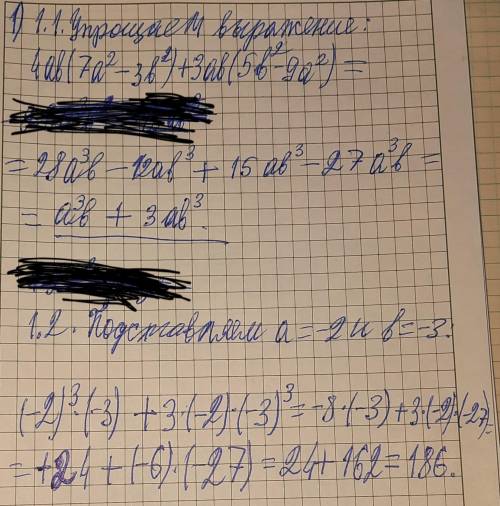 1) 1.1. Упрощаем выражение:
4ab(7a²-3b²)+3ab(5b²-9a²)=
=28a³b-12ab³+15ab³-27a³b=
=a³b+3ab³.
1.2. Подставляем a=-2 и b=-3:
(-2)³·(-3)+3·(-2)·(-3)³=-8·(-3)+3·(-2)·(-27)=
=+24+(-6)·(-27)=24+162=186.